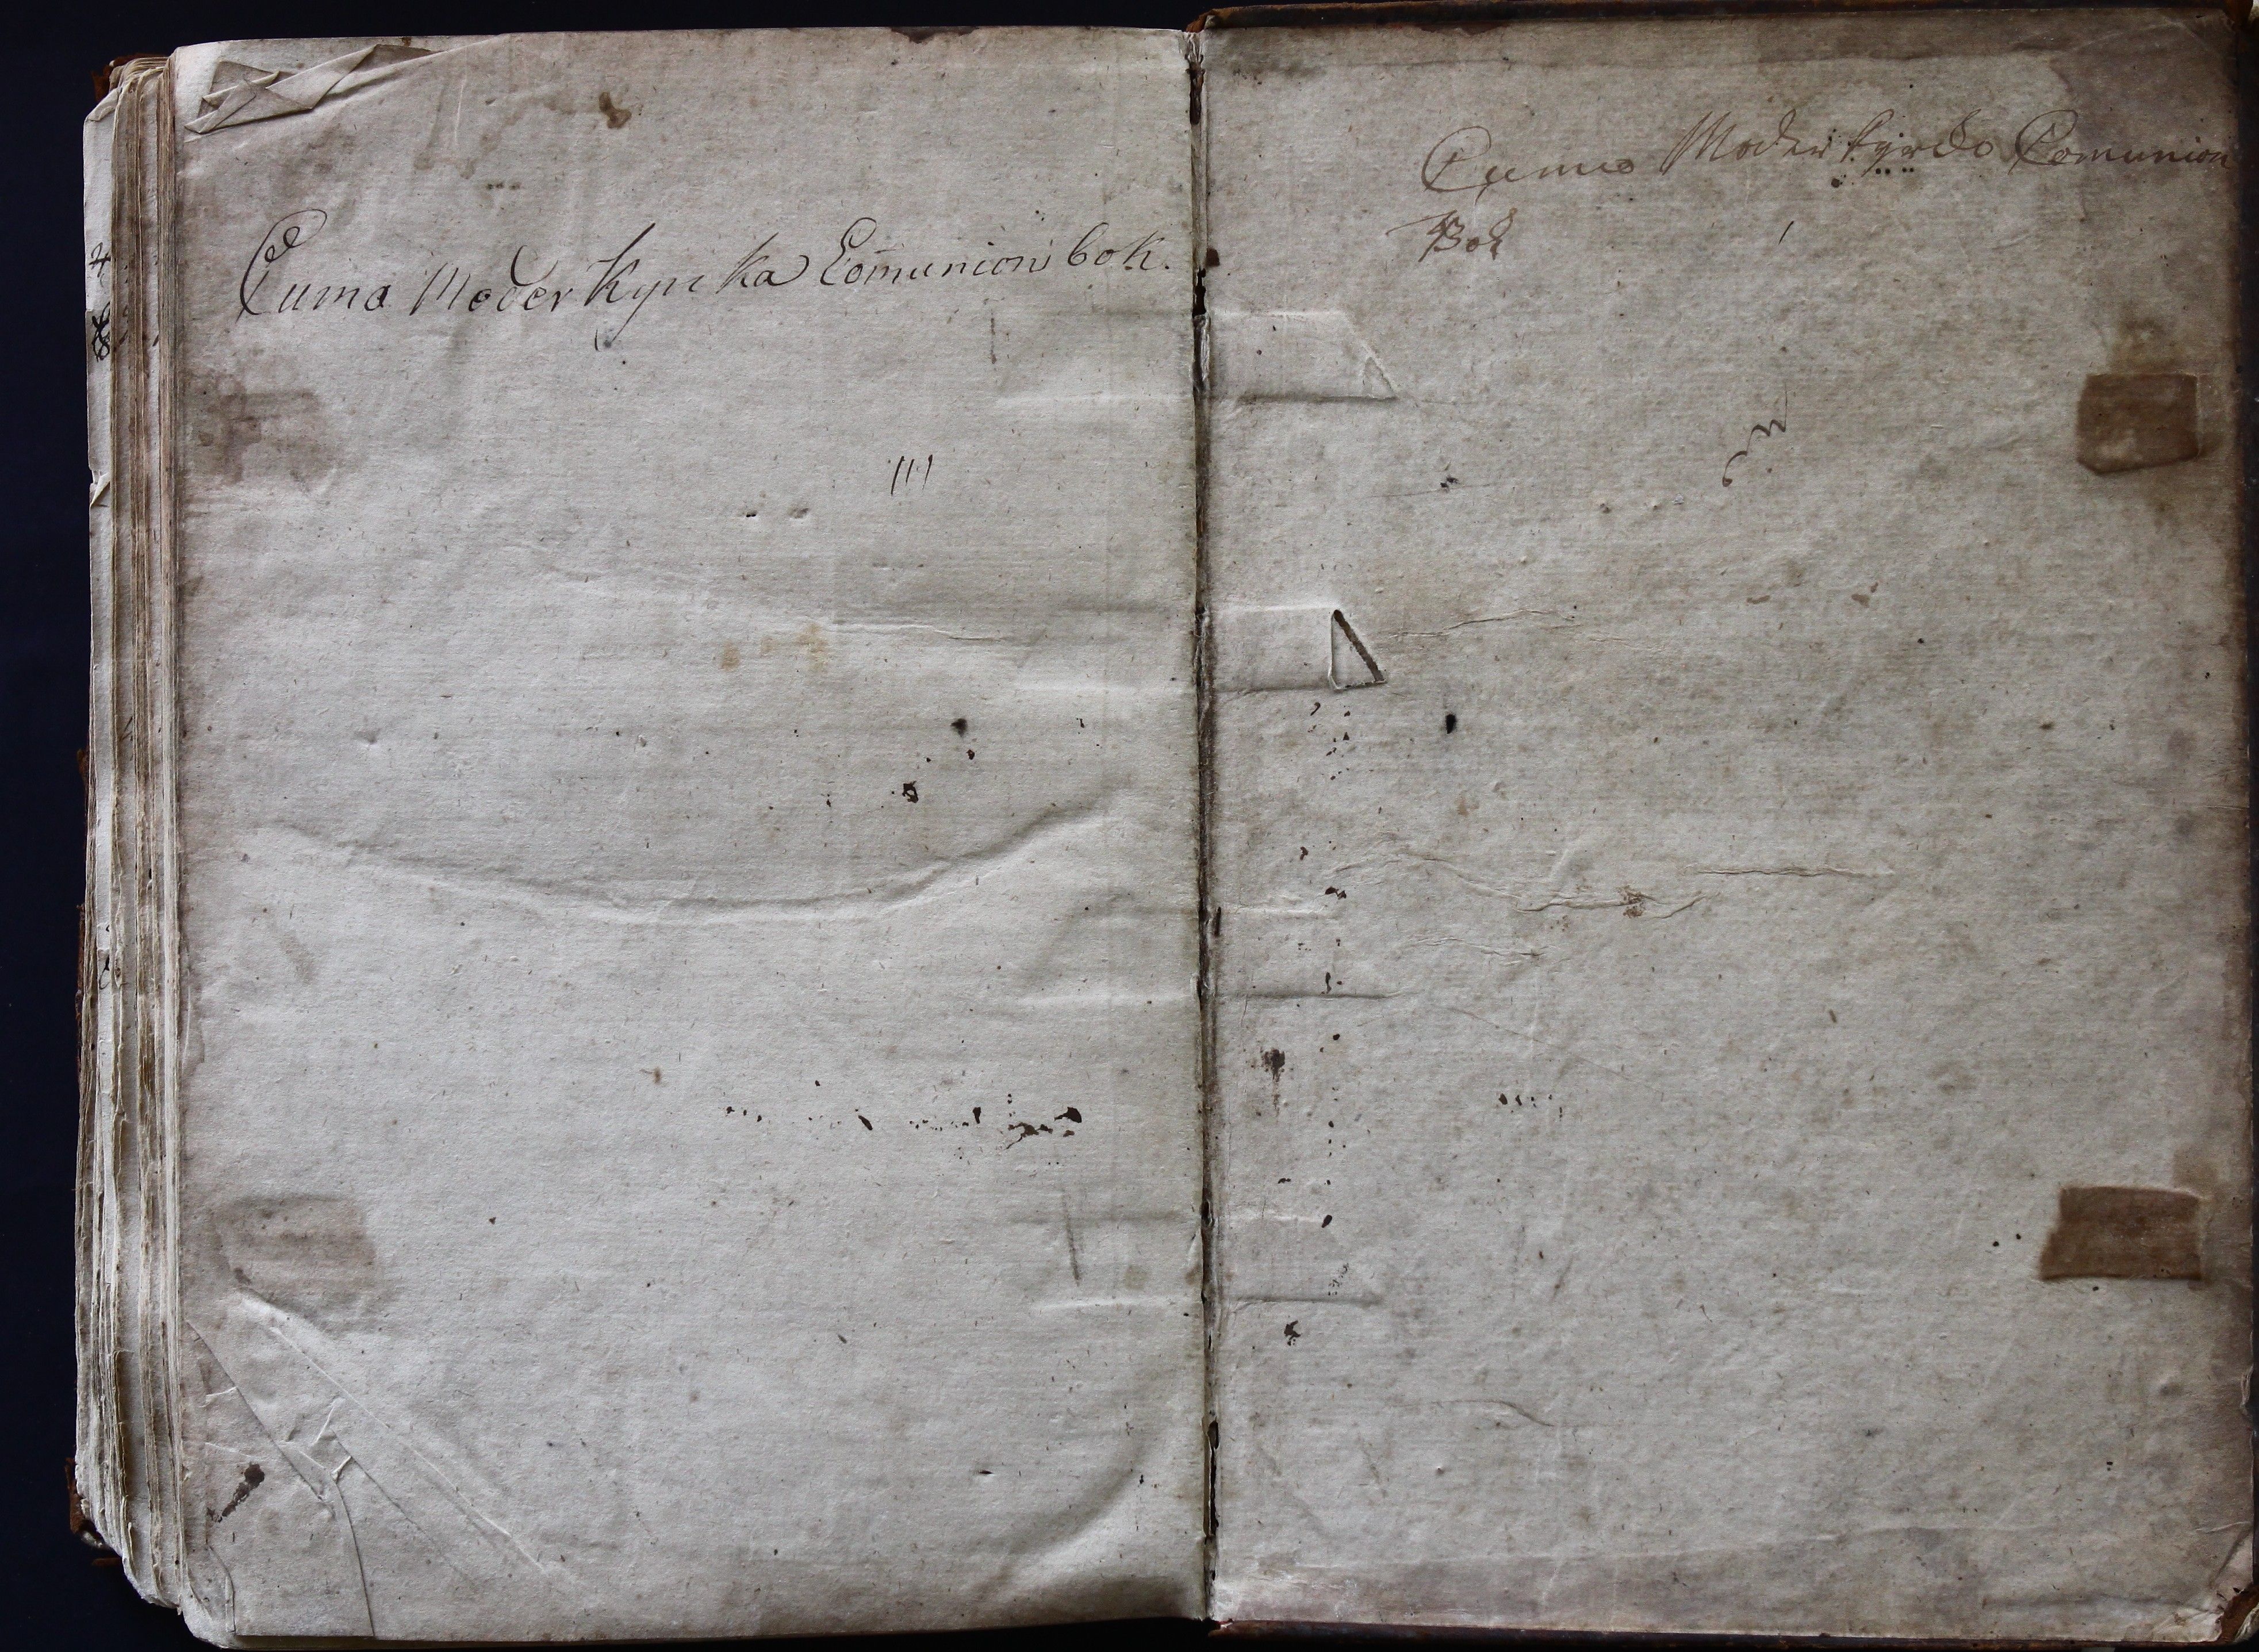 Cumo Moder Kyrka Com̄unions bok.
Cumo Moder kyrko Comunion
Bok